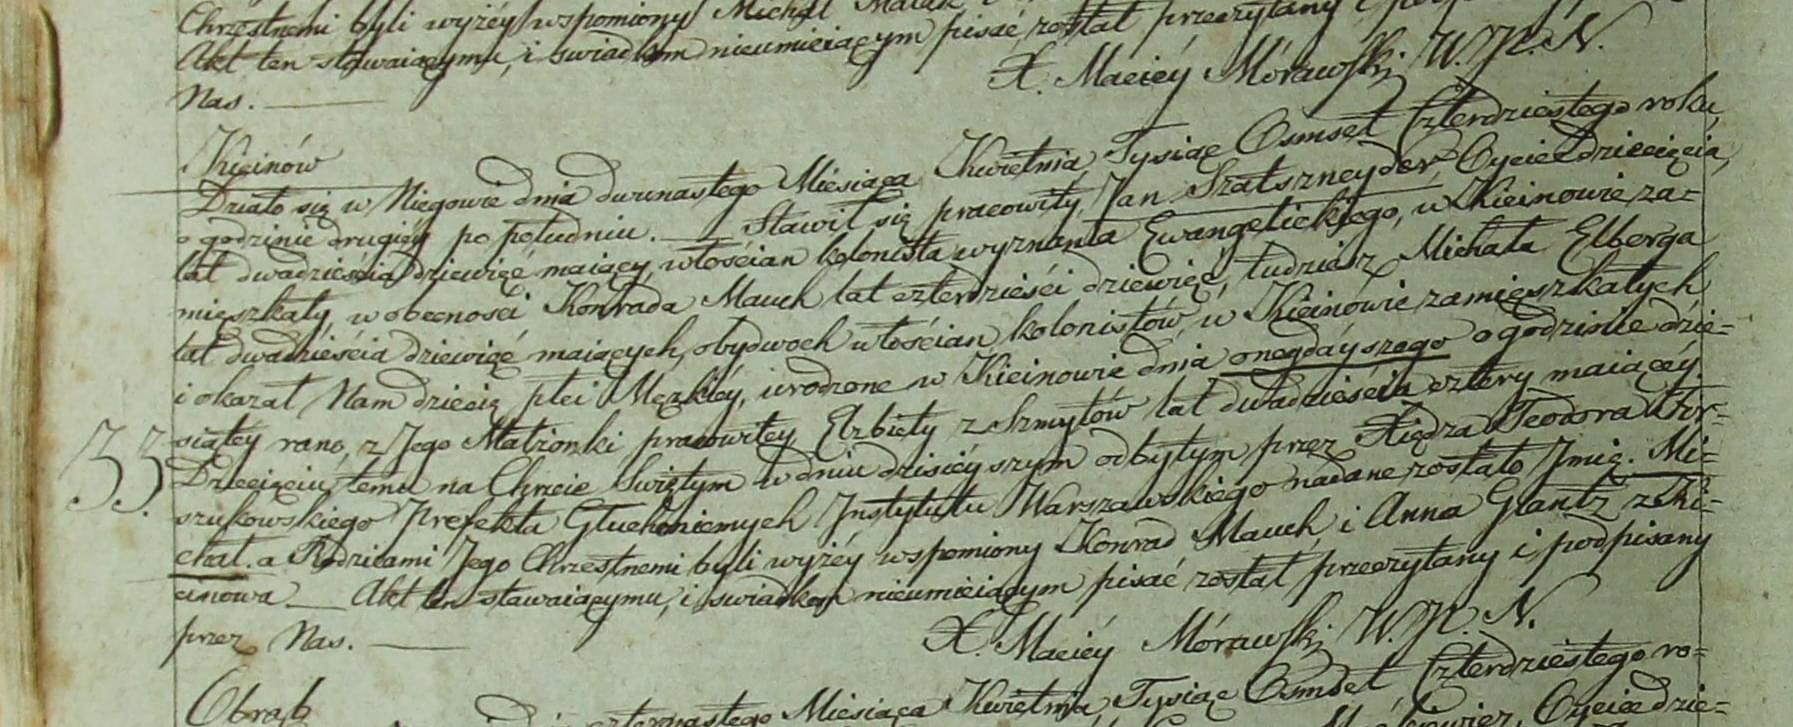 Chrzestnemi byli wyżéy wspomiony Michał
Akt ten stawaiącymu, i swiadkom nieumieiącym pisać, został przeczytany i
Nas. —
X. Maciéy Mórawski W. P. N.
Kicinów
Działo się w Niegowie dnia dwunastego Miesiąca Kwietnia Tysiąc Osmset Czterdziestego roku,
o godzinie drugiéy po południu. — Stawił się pracowity Jan Szatsznejder, Oyciec dziecięcia,
lat dwadzieścia dziewięć maiący, włościan kolonista wyznania Ewangelickiego, w Kicinowie za=
mięszkały, w obecności Konrada Mauch lat czterdzieści dziewięć, tudzież Michała Elberga
lat dwadzieścia dziewięć maiących, obydwoch włościan kolonistów, w Kicinówie zamięszkałych
i okazał Nam dziecię płci Męzkiéy, urodzone w Kicinowie dnia onegdáyszego o godzinie dzie=
siątey rano, z Jego Małżonki pracowitey Elzbiety z Szmytów lat dwadzieścia cztery maiącéy.
33.
Dziecięciu temu na Chrzcie Swiętym w dniu dzisiéyszym odbytym przez Xiędza Teodora Kor=
szukowskiego Prefekta Głuchoniemych Instytutu Warszawskiego nadane zostało Jmię. Mi=
chał. a Rodzicami Jego Chrzestnemi byli wyżéy wspomiony Konrad Mauch, i Anna Glantz z Ki=
cinowa — Akt ten stawaiącymu, i swiadkom nieumieiącym pisać został przeczytany i podpisany
przez Nas. —
X. Maciéy Mórawski W. P. N.
Obrąb
czternastego Miesiąca Kwietnia Tysiąc Osmset Czterdziestego ro=
Oyciec dzie=